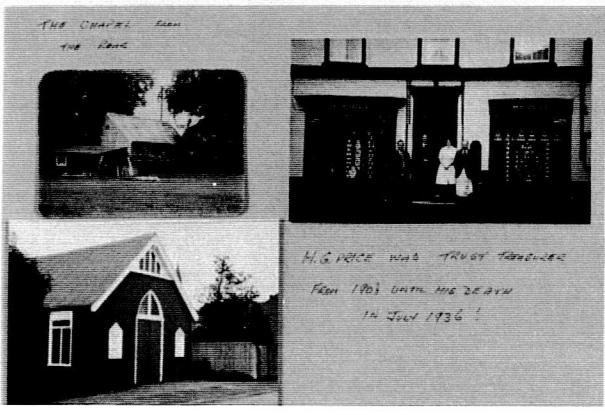 THE CHAPEL FROM
THE REAR
H.G. PRICE WAS TRUST TREASURER
FROM UNTIL HIS DEATH
IN JULY 1936!